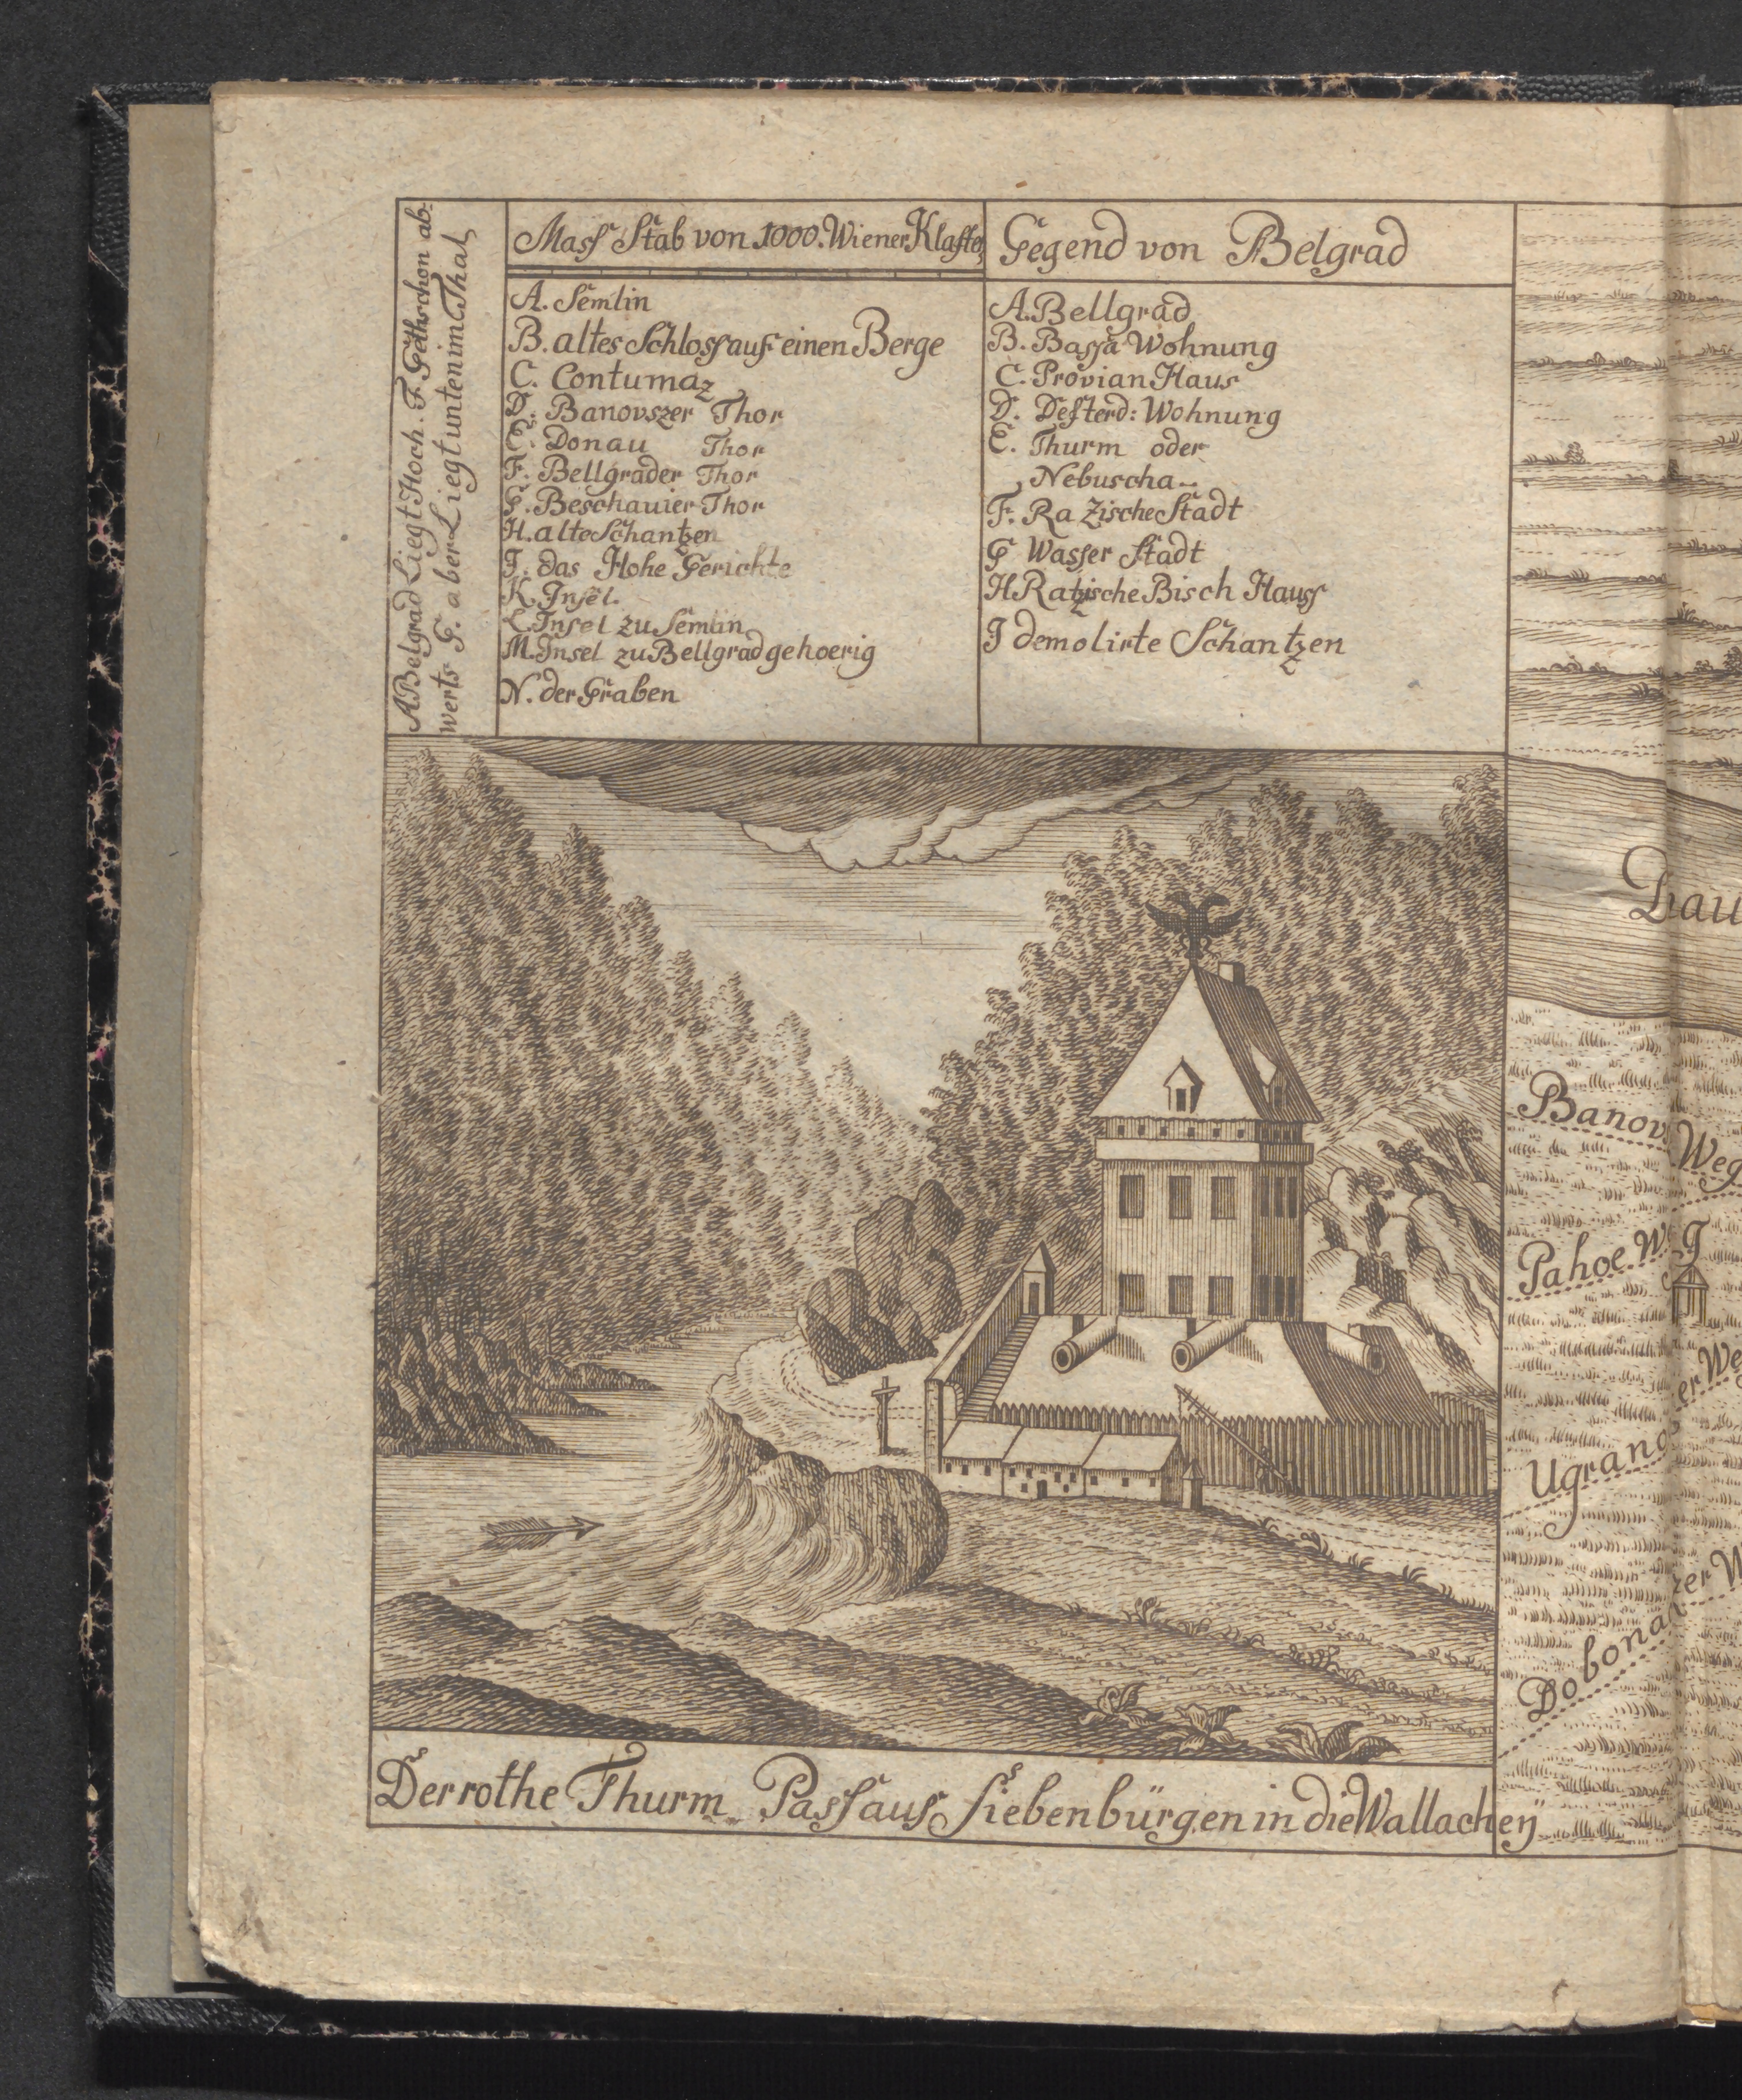 A Belgrad Liegt Hoch. F. Geth schon ab-
werts G. aber Liegt unten im Thal,
Mass Stab von 1000. Wiener Klafter
A. Semlin
B. altes Schloss auf einen Berge
C. Contumaz
D. Banovszer Thor
E. Donau Thor
F. Bellgrader Thor
G. Beschanier Thor
H. alte Schantzen
J. das Hohe Gerichte
K. Jnsel.
L. Jnsel zu Semlin
M. Jnsel zu Bellgrad gehoerig
N. der Graben
Gegend von Belgrad
A. Bellgrad
B. Bassa Wohnung
C. Provian Haus
D. Defterd: Wohnung
E. Thurm oder
Nebuscha
F. Razische Stadt
G Wasser Stadt
H. Ratzische Bisch Hauss
J demolirte Schantzen
Der rothe Thurm Pass aus Siebenbürgen in die Wallacheÿ
Banov. Weg
Pahoe
J